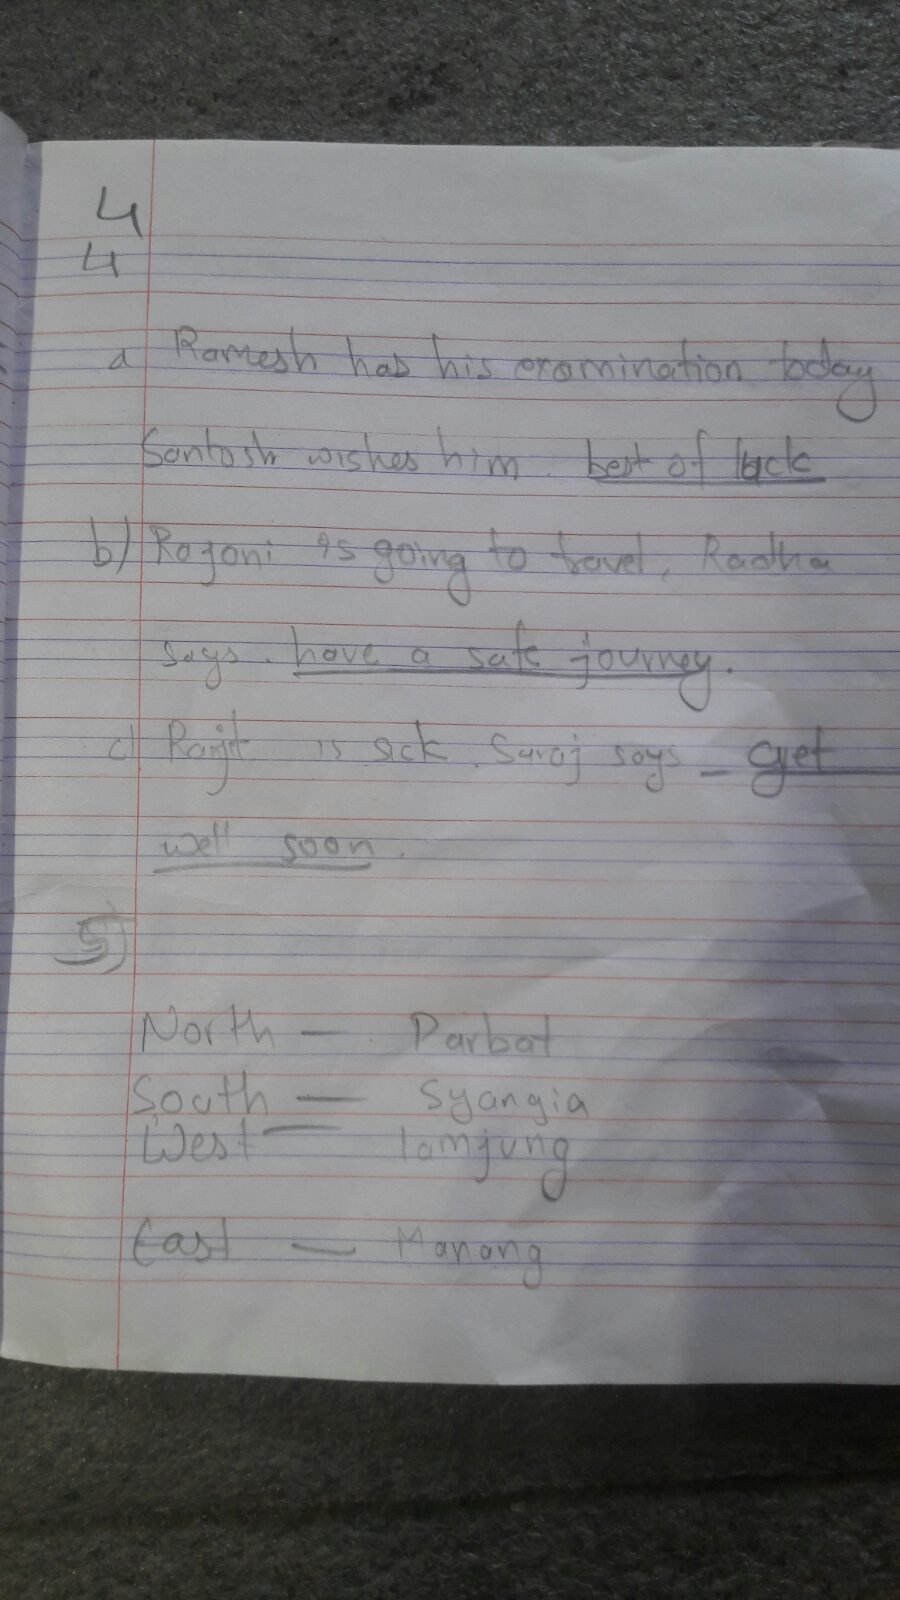 4
4
a Ramesh has his examination today
Santosh wishes him. best of luck
b) Rajani is going to travel, Radha
says. have a safe journey.
c) Ranjit is sick. Suraj says - get
well soon.
5)
North - Parbat
South - Syangia
West - lamjung
East - Manang